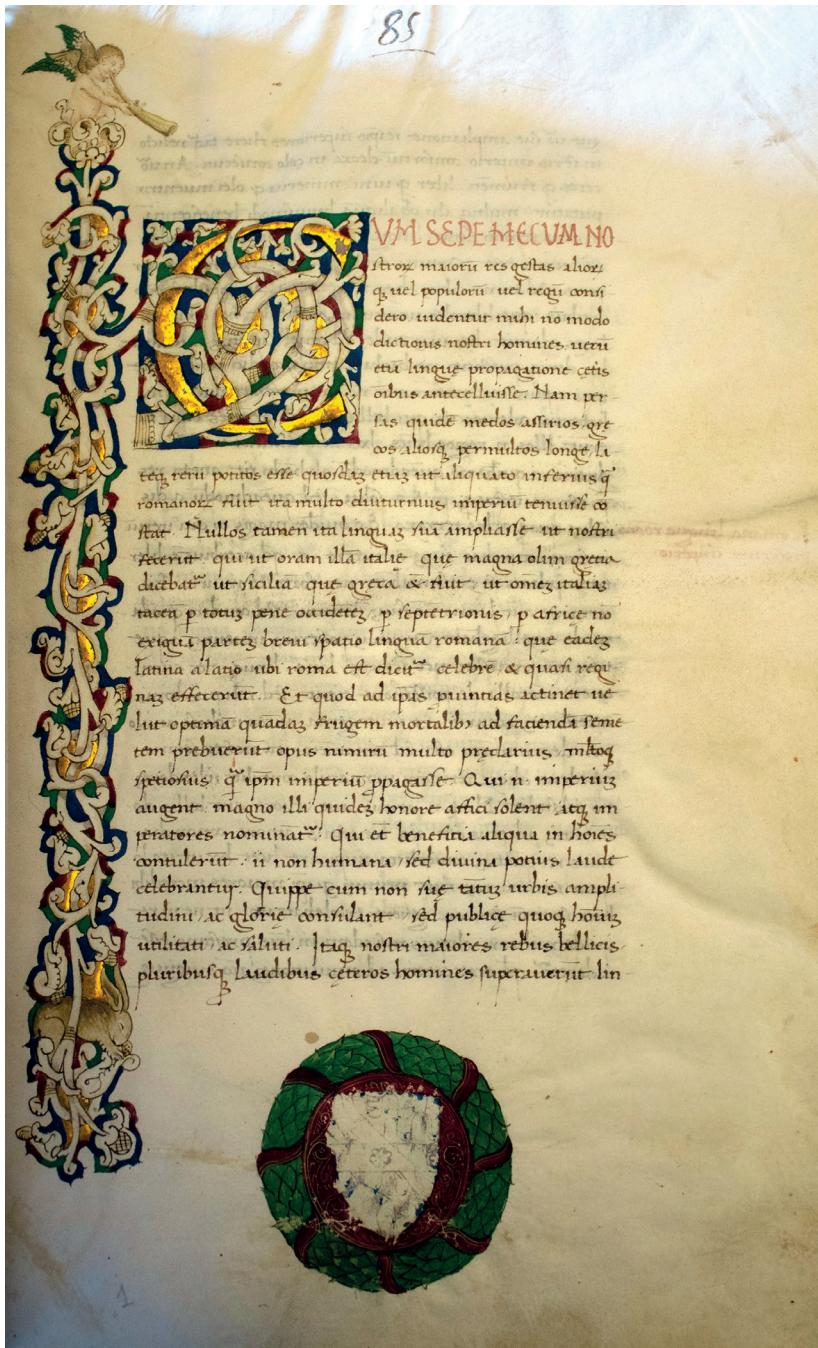 85
CVM SEPE MECUM NO
stroꝝ maioru̅ res gestas alioꝝ
qꝫ uel populoru̅ uel regu̅ consi
dero uidentur mihi no̅ modo
dictionis nostri homines ueru̅
etia̅ lingue propagatione cȩtis
oi̅bus antecelluisse. Nam per
sas quide̅ medos assirios gre
cos aliosqꝫ permultos longe la
teqꝫ reru̅ potitos esse quosdaꝫ etiaꝫ ut aliqua̅to inferius q̅
romanoꝝ fuit ita multo diuturnius imperiu̅ tenuisse co̅
stat. Nullos tamen ita linguaꝫ sua̅ ampliasse ut nostri
fecerut̅. qui ut oram illa̅ italie que magna olim gretia
dicebat᷑ ut sicilia̅ que greca & fuit. ut omeꝫ italiaꝫ
tacea̅ p̱ totuꝫ pene occide̅teꝫ p̱ septe̅trionis, p̱ africe no̅
exigua̅ parteꝫ brevi spatio lingua̅ romana̅: que eadeꝫ
latina a latio ubi roma est dicit᷑ celebre̅ & quasi regi
naꝫ effecerut̅. Et quod ad ip̅as p̱uintias actinet ue
lut optima̅ quadaꝫ frugem mortalibꝫ ad facienda̅ seme̅
tem prebuerut̅ opus nimiru̅ multo prȩclarius, mltoqꝫ
spetiosius q̅ ip̅m imperiu̅ p̱pagasse. Qui n. imperiuꝫ
augent magno illi quideꝫ honore affici solent, atqꝫ im
peratores nominat᷑. Qui et̅ benefitia aliqua in ho̅ies
contulerut̅. ii non humana, sed diuina potius laude
celebrantur. Quippe cum non suȩ ta̅tuꝫ urbis ampli
tudini, ac gloriȩ consulant sed publicȩ quoqꝫ ho̅inuꝫ
utilitati ac saluti. Itaqꝫ nostri maiores rebus bellicis
pluribusqꝫ laudibus cȩteros homines superauerut̅ lin